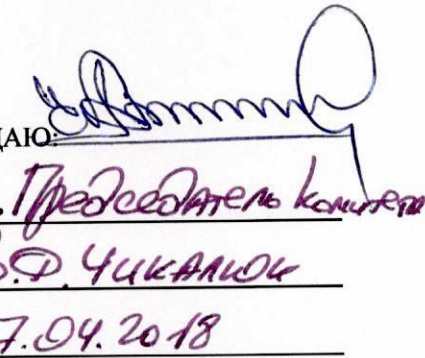 ДАЮ:
. Председатель комитета
.Ф. Чикалюк
7.04.2018